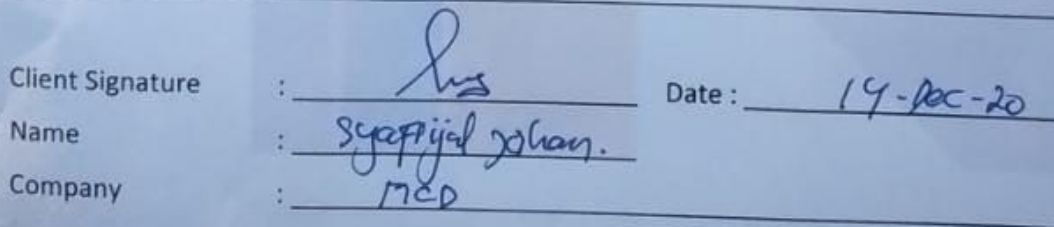 Client Signature : Date : 14-Dec-20
Name : Syaffijal Johan.
Company : MCD